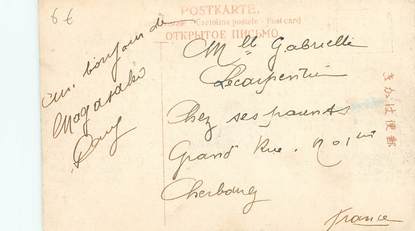 6 €
POSTKARTE.
Cartolina postale - Post card
ОТКРЫТОЕ ПИСЬМО
きかは便郵
un bonjour de
Nagasaki
Mlle Gabrielle
Lecarpentier
Chez ses parents
Grand Rue. No 1
Cherbourg
France